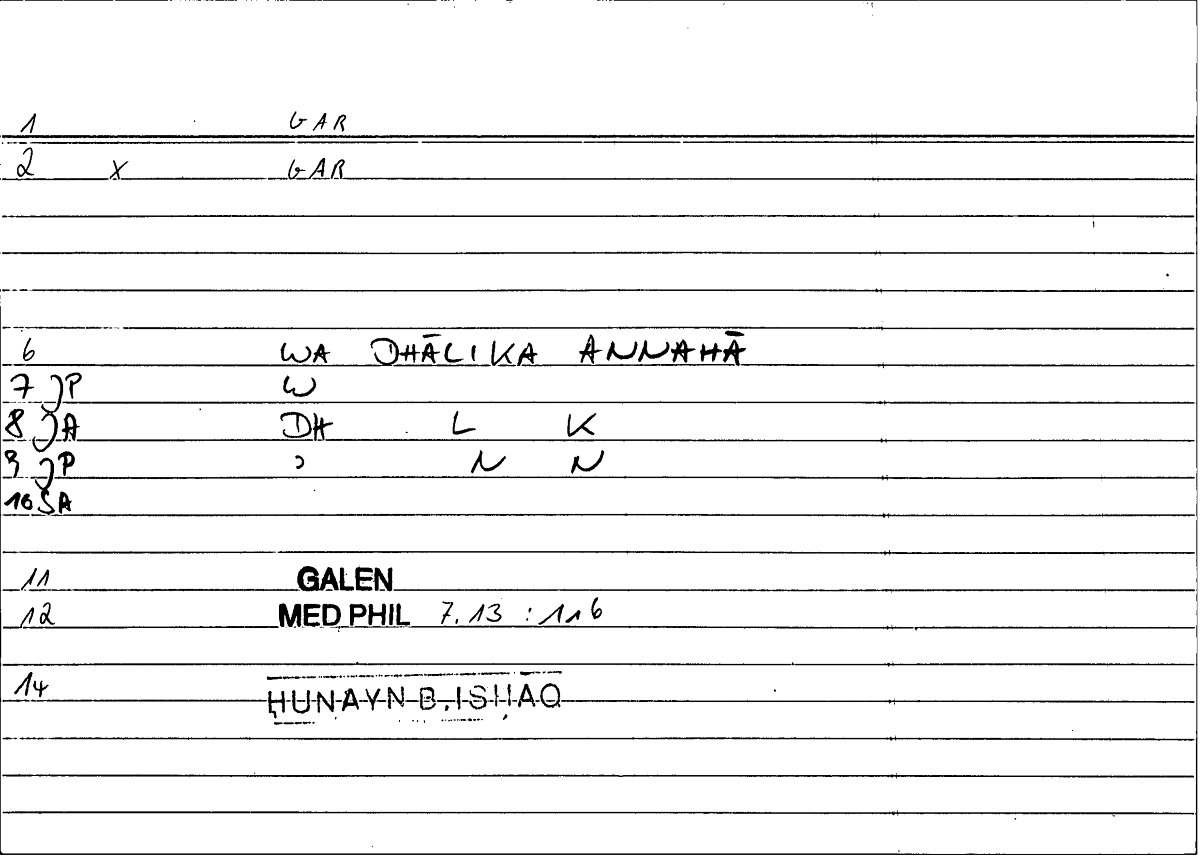 1 GAR
2 X GAR
6 WA DHĀLIKA ANNAHĀ
7 JP W
8 JA DH L K
9 JP ʾ N N
10 SA
11 GALEN
12 MED PHIL 7.13 : 116
14 ḤUNAYN B. ISḤĀQ